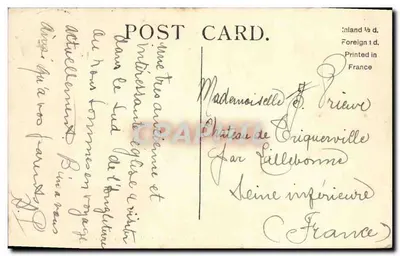 POST CARD.
Inland ½ d.
Foreign 1 d.
Printed in
France
une très ancienne et
intéressante église à visiter
dans le Sud de l'Angleterre
où nous sommes en voyage
actuellement
ainsi qu'à vos parents
Mademoiselle
Château de Triquerville
par Lillebonne
Seine inférieure
(France)